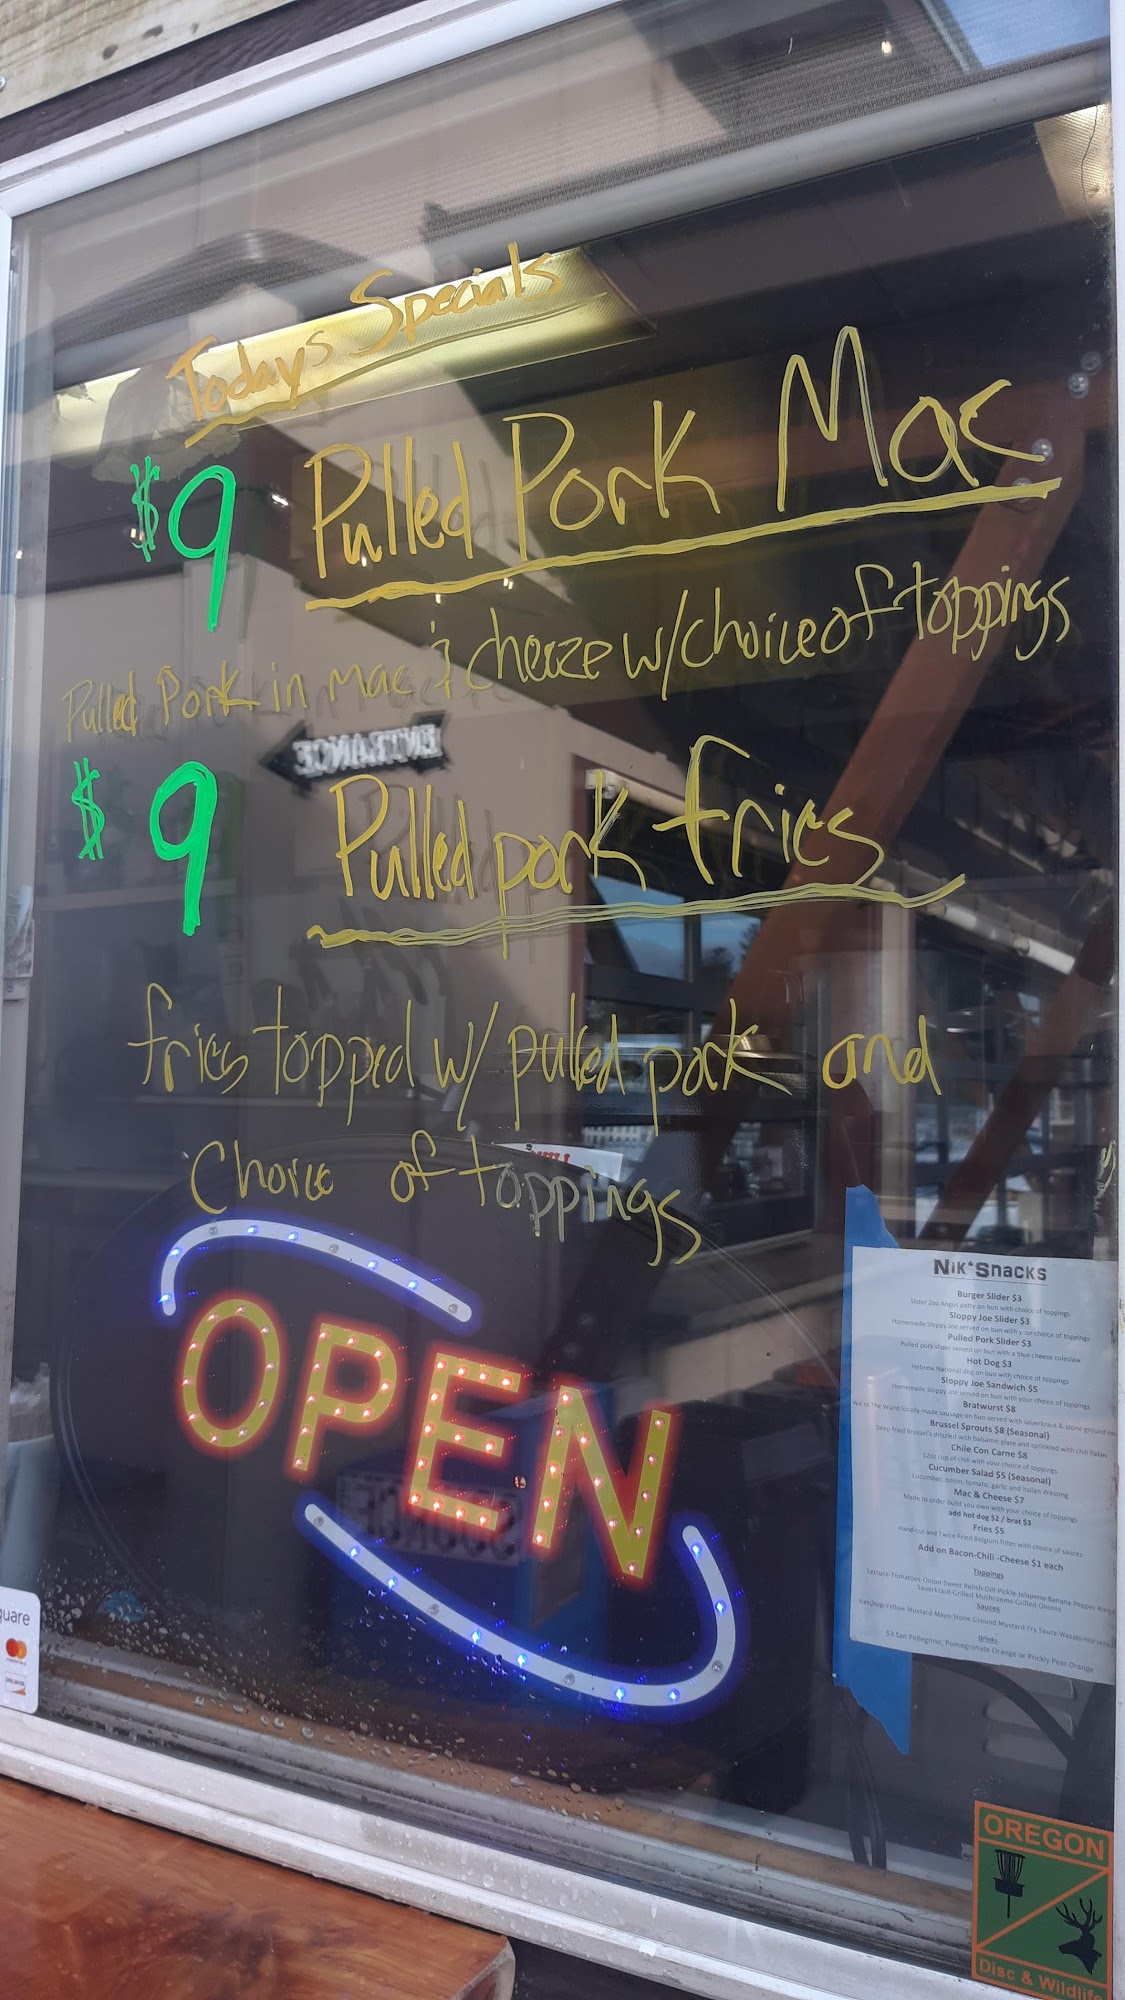 Todays Specials
$9 Pulled Pork Mac
Pulled Pork in Mac & cheeze w/choice of toppings
ENTRANCE
$9 Pulled pork fries
fries topped w/ pulled pork and
Choice of toppings
OPEN
NIK'SNACKS
Burger Slider $3
Slider 2oz Angus patty on bun with choice of toppings
Sloppy Joe Slider $3
Homemade Sloppy Joe served on bun with your choice of toppings
Pulled Pork Slider $3
Pulled pork slider served on bun with a blue cheese coleslaw
Hot Dog $3
Hebrew National dog on bun with choice of toppings
Sloppy Joe Sandwich $5
Homemade Sloppy Joe served on bun with your choice of toppings
Bratwurst $8
We're The Wurst locally made sausage on bun served with sauerkraut & stone ground
Brussel Sprouts $8 (Seasonal)
Deep fried Brussel's drizzled with balsamic glaze and sprinkled with chili flakes
Chile Con Carne $8
12oz cup of chili with your choice of toppings
Cucumber Salad $5 (Seasonal)
Cucumber, onion, tomato, garlic and Italian dressing
Mac & Cheese $7
Made to order build you own with your choice of toppings
add hot dog $2 / brat $3
Fries $5
Hand-cut and Twice Fried Belgium frites with choice of sauces
Add on Bacon-Chili -Cheese $1 each
Toppings
Lettuce-Tomatoes-Onion-Sweet Relish-Dill Pickle-Jalapeno-Banana Pepper
Sauerkraut-Grilled Mushrooms-Grilled Onions
Sauces
Ketchup-Yellow Mustard-Mayo-Stone Ground Mustard-Fry Sauce-Wasabi
Drinks
$3 San Pellegrino, Pomegranate Orange or Prickly Pear Orange
quare
DISCOVER
OREGON
Disc & Wildlife